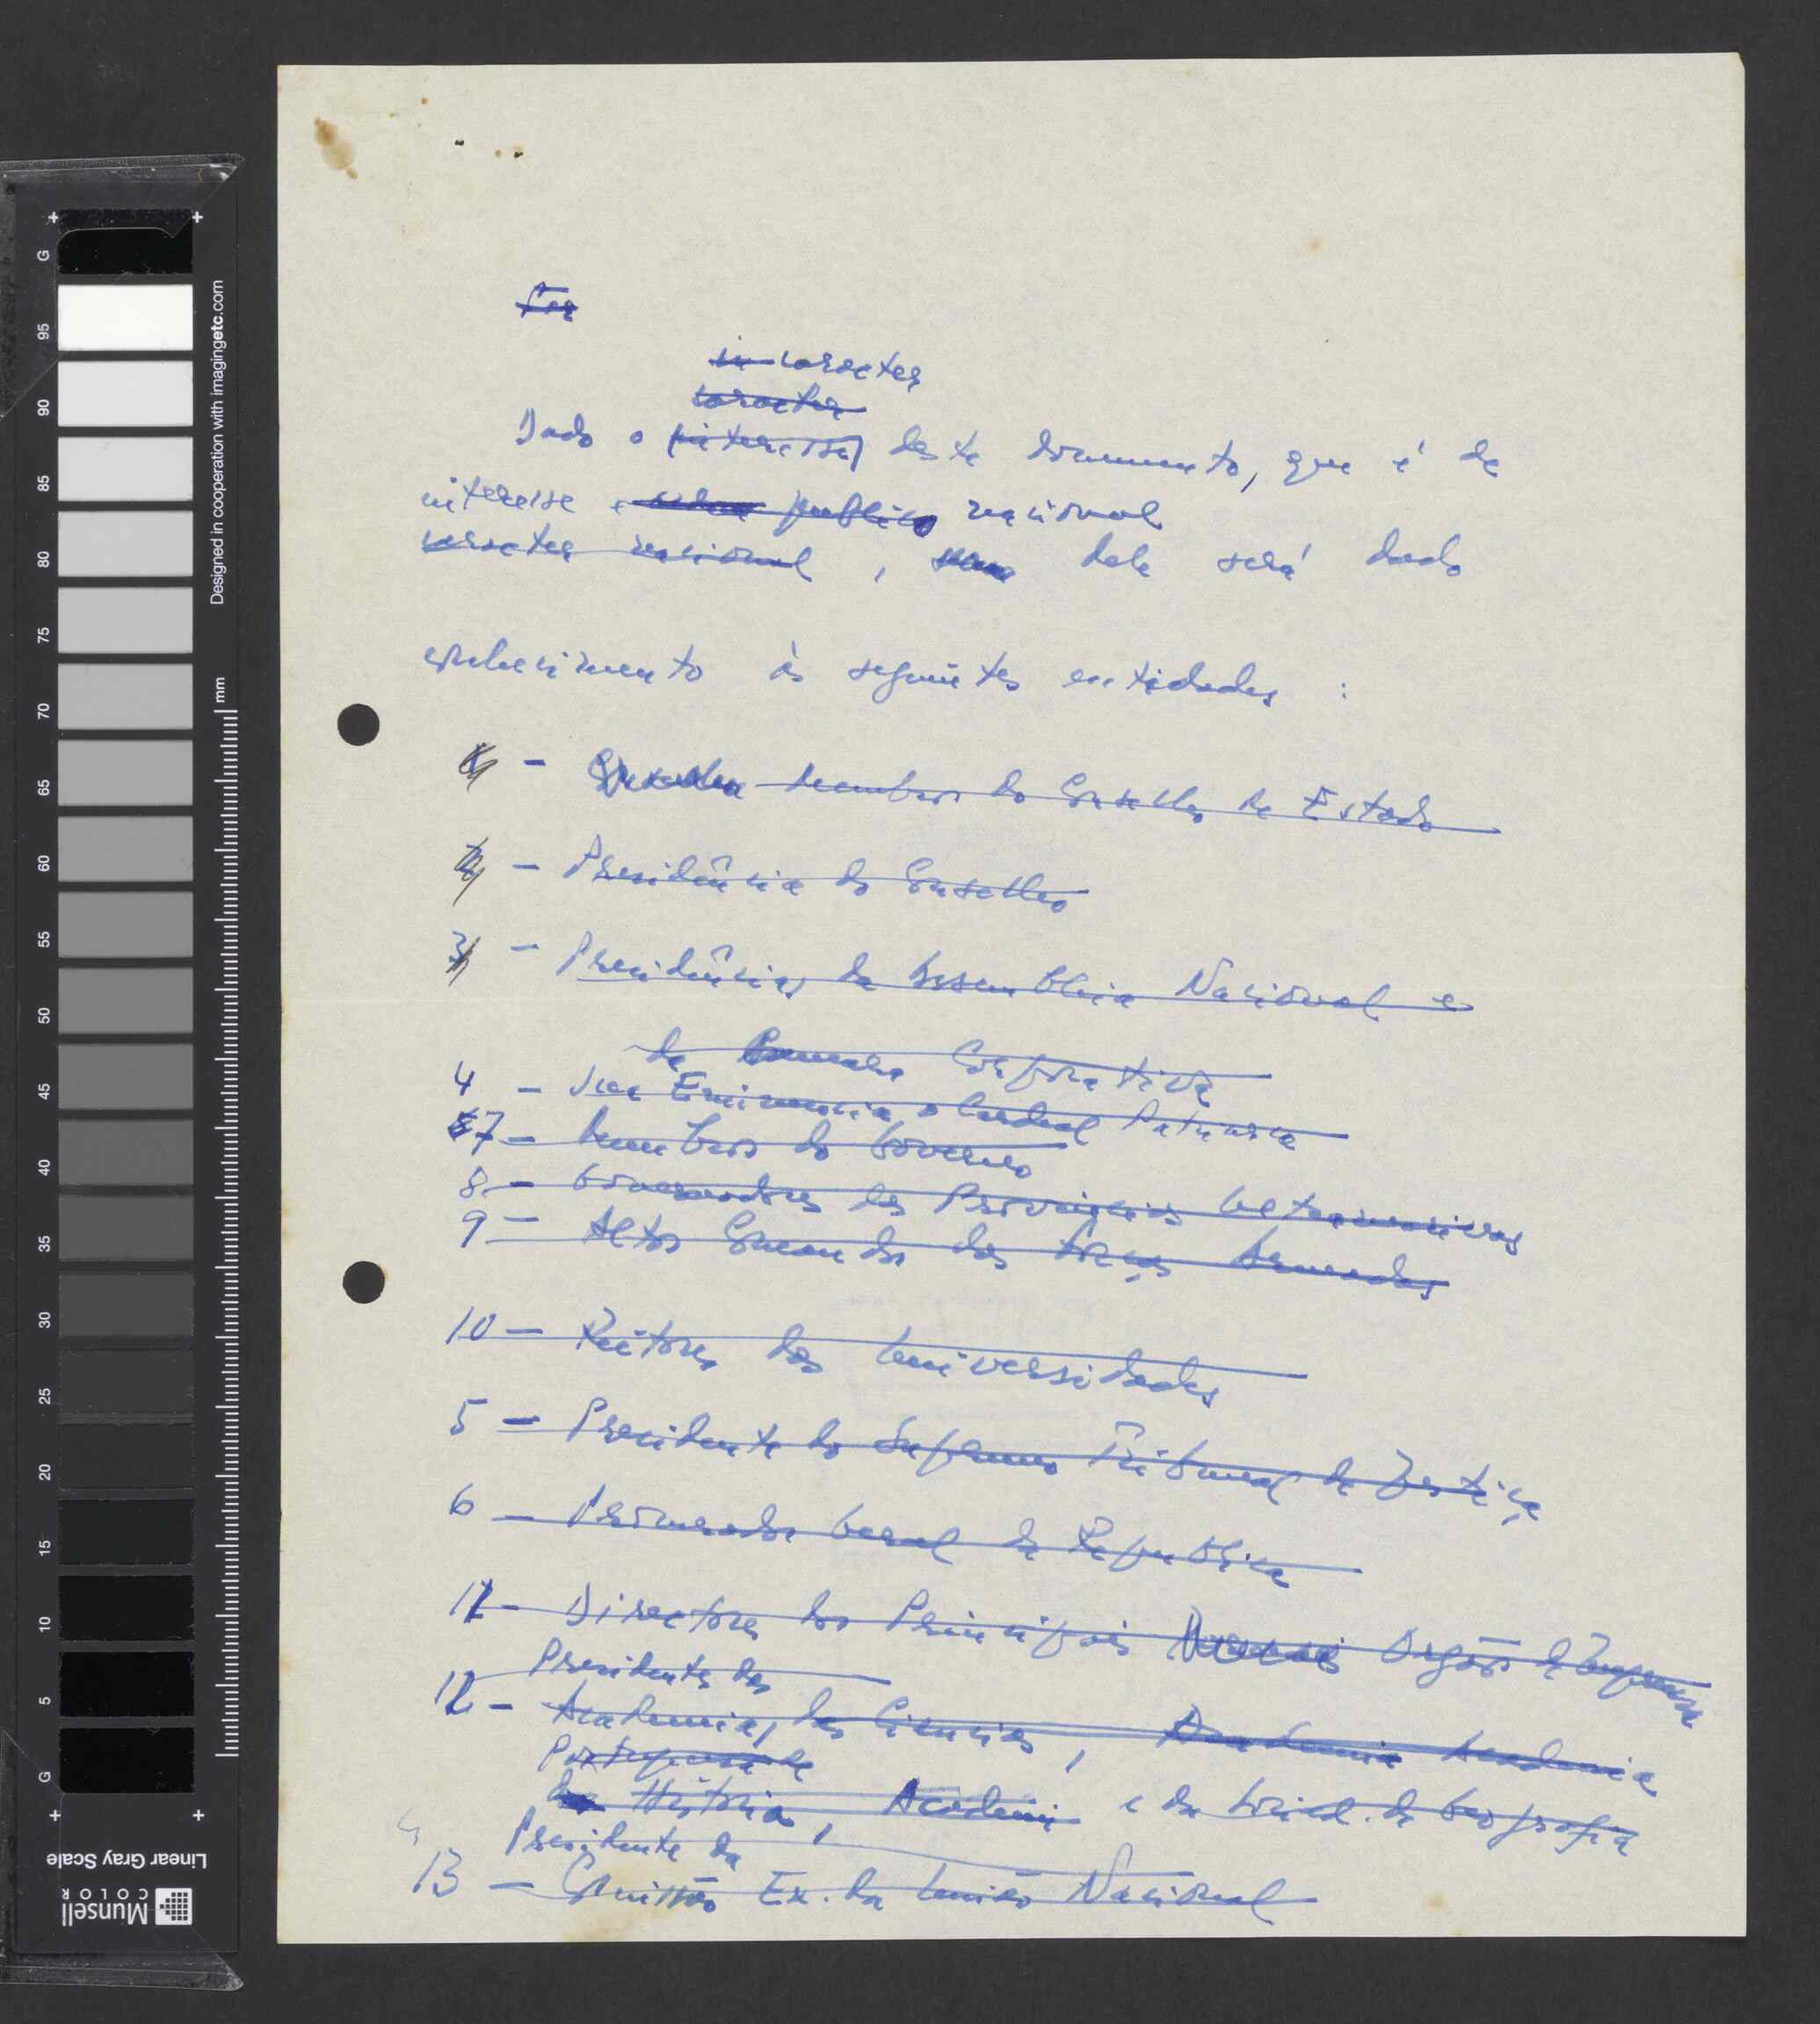 Por
in caracter
caracter
Dado o (interesse) deste documento, que é de
interesse e publico nacional
caracter nacional, dele será dado
conhecimento às seguintes entidades :
- Membros do Conselho de Estado
- Presidência do Conselho
3 - Presidências da Assembleia Nacional e
da Camara Corporativa
4 - Sua Eminencia o Cardeal Patriarca
7 - Membros do Governo
8 - Governadores das Provincias Ultramarinas
9 - Altos Comandos das Forças Armadas
10 - Reitores das Universidades
5 - Presidente do Supremo Tribunal de Justiça
6 - Procurador Geral da Republica
11 - Directores dos Principais Orgãos de Imprensa
Presidentes das
12 - Academias, das Ciencias, Academia Academia
Portuguesa de
da História, Academi e da Socied. de Geografia
Presidente da
13 - Comissão Ex. da União Nacional
G
95
90
85
80
75
70
65
60
55
50
45
40
35
30
25
20
15
10
5
G
mm
Designed in cooperation with imagingetc.com
Linear Gray Scale
Munsell
COLOR